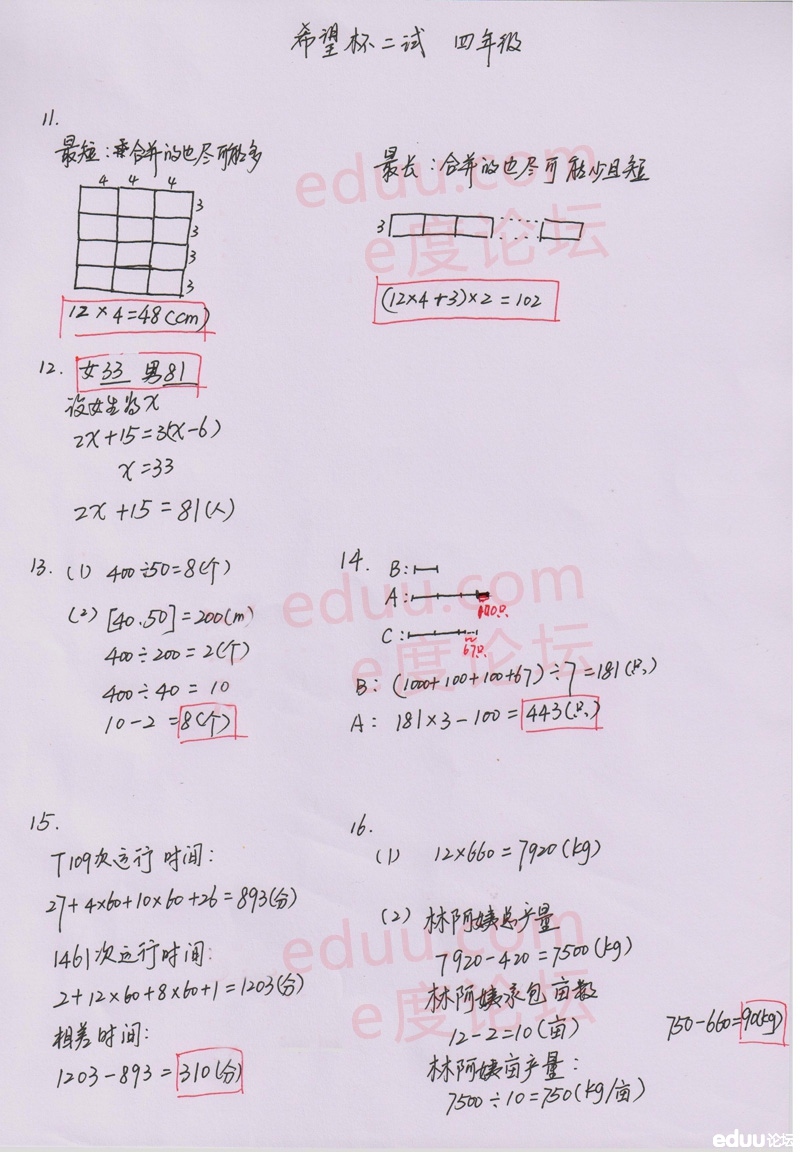 希望杯二试 四年级
11.
最短:合并的边尽可能多
4 4 4
3
3
3
3
12×4=48(cm)
最长:合并的边尽可能少且短
3
(12×4+3)×2=102
12. 女33 男81
设女生为x
2x+15=3(x-6)
x=33
2x+15=81(人)
13. (1) 400÷50=8(个)
(2) [40、50]=200(m)
400÷200=2(个)
400÷40=10
10-2=8(个)
14. B:
A:
100只
C:
67只
B: (1000+100+100+67)÷7=181(只)
A: 181×3-100=443(只)
15.
T109次运行时间:
27+4×60+10×60+26=893(分)
1461次运行时间:
2+12×60+8×60+1=1203(分)
相差时间:
1203-893=310(分)
16.
(1) 12×660=7920(kg)
(2) 林阿姨总产量
7920-420=7500(kg)
林阿姨承包亩数
12-2=10(亩)
林阿姨亩产量:
7500÷10=750(kg/亩)
750-660=90(kg)
eduu.com
e度论坛
eduu.com
e度论坛
eduu.com
e度论坛
eduu论坛